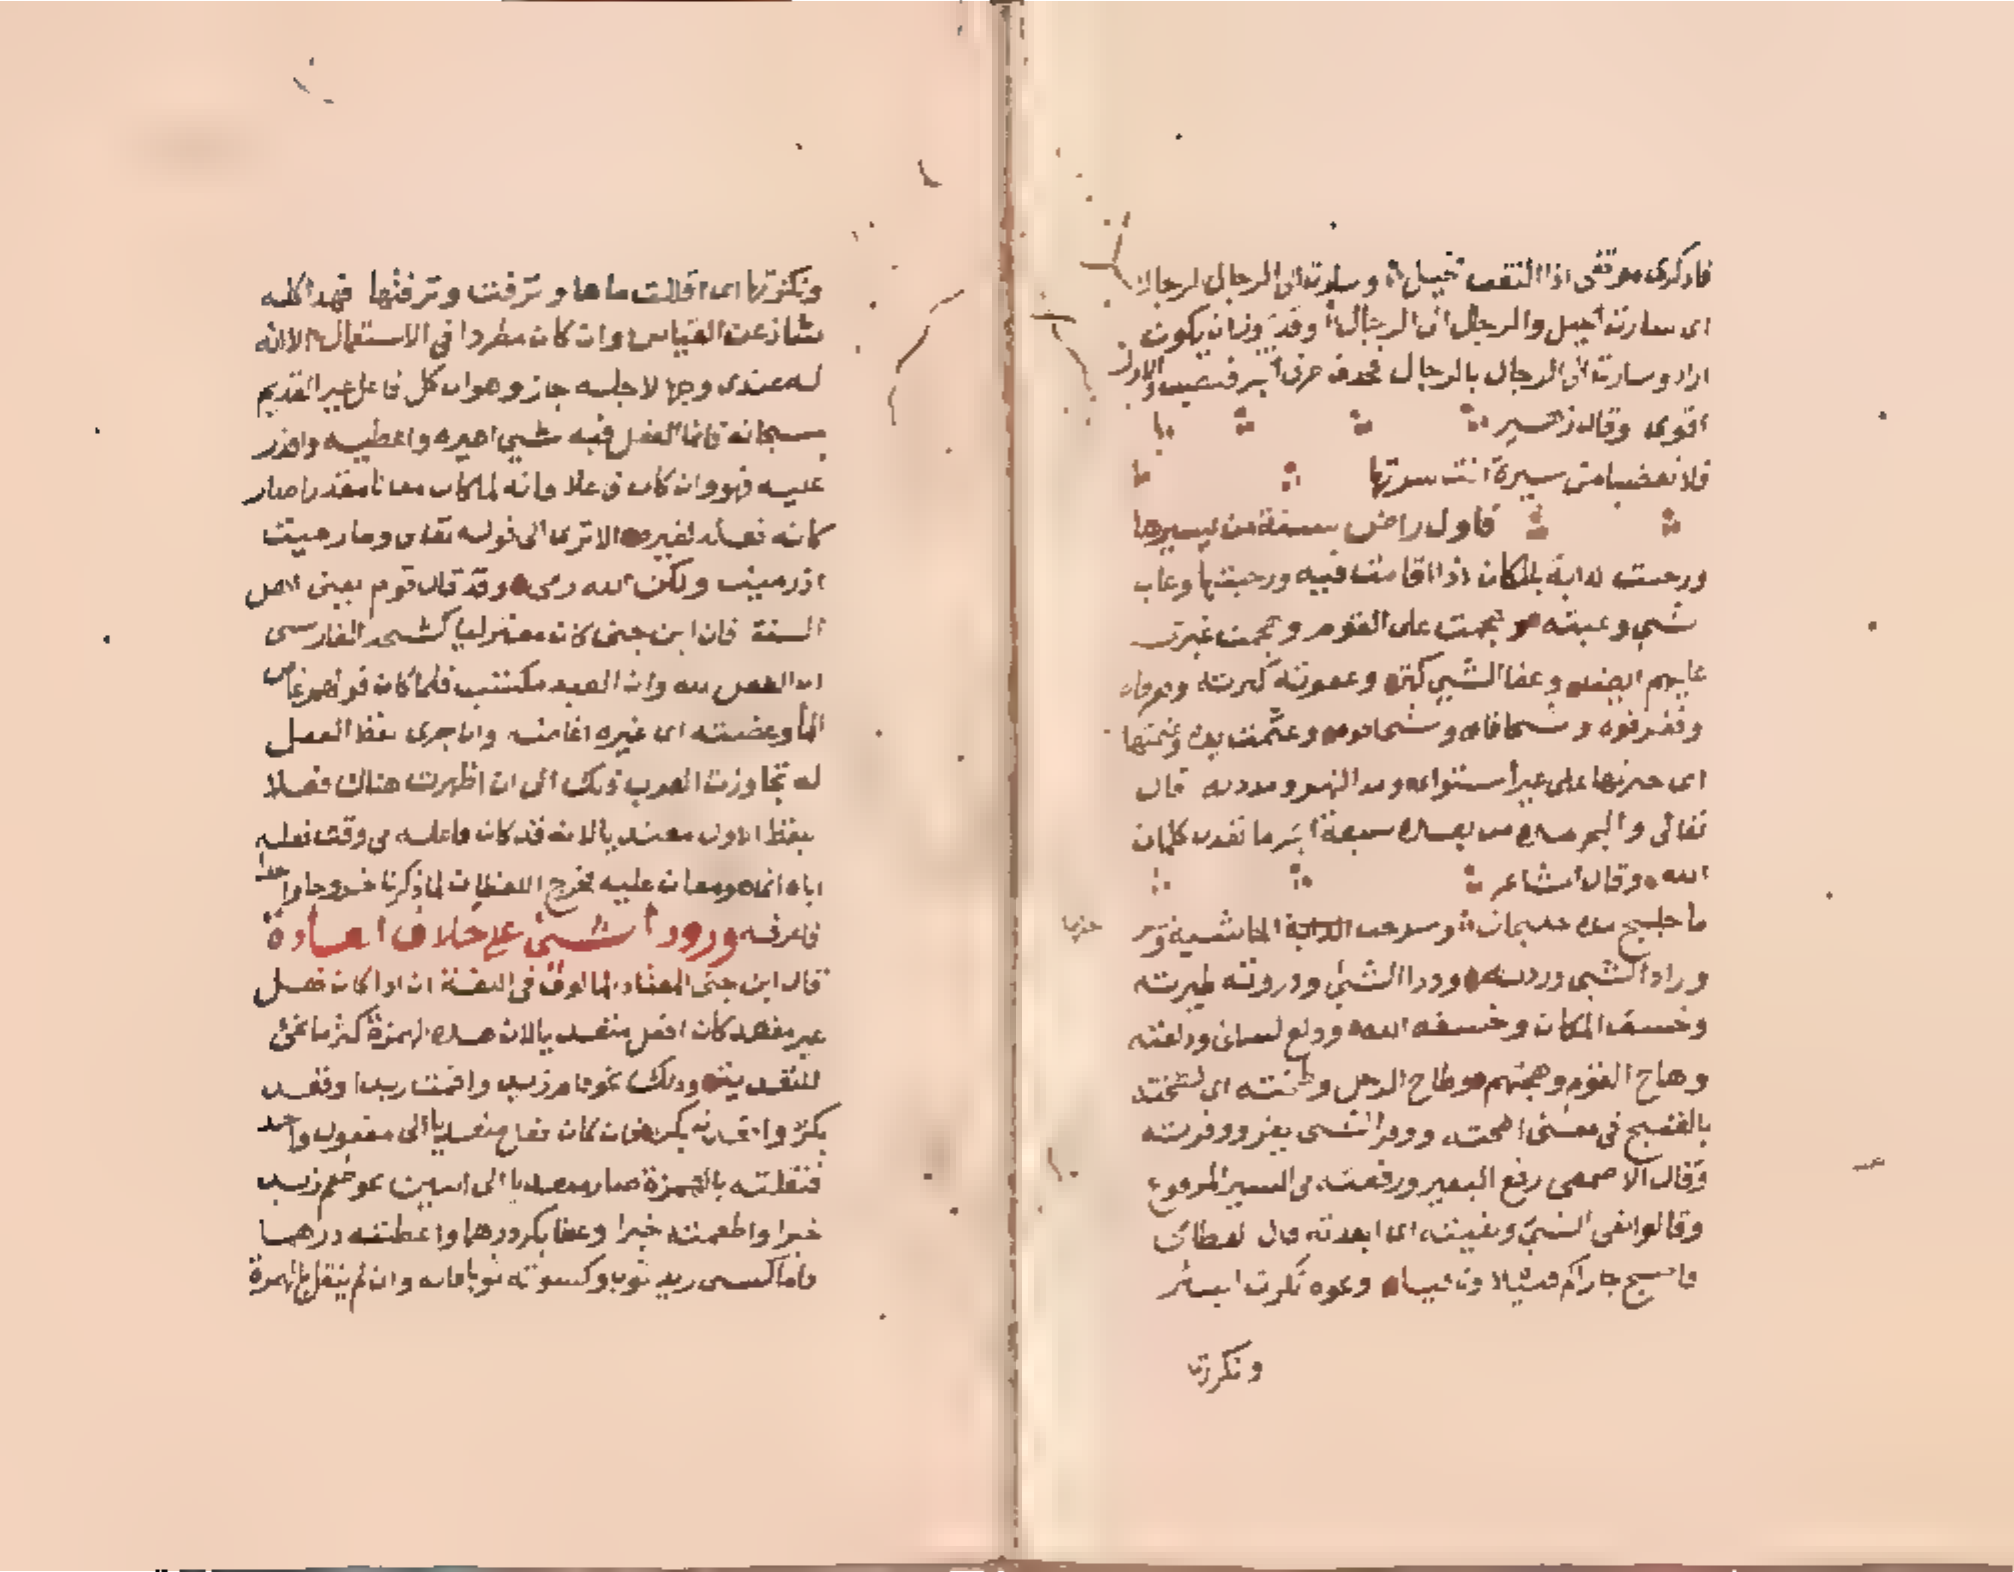 فاذكرى موقفى اذا التقت الخيل وسارت الى الرجال الرجالا
اى سارت الخيل والرجال الى الرجال وقد يكون
اراد وسارت الى الرجال بالرجال فحذف حرف الجر فنصب والاول
اقوى وقال زهير
فلا تغضبا من سيرة انت سرتها
فاول راض سنة من يسيرها
ورجنت الدابة بالمكان اذا اقامت فيه ورجنتها وعاب
شىء وعبته وهجمت على القوم وهجمت غيرى
عليهم ايضا وعفا الشىء كثر وعفوته كثرته وفغرفاه
وفغر فوه وشحا فاه وشحا فوه وعثمت يده وعثمتها
اى جبرتها على غير استواء ومد النهر ومددته قال
تعالى والبحر يمده من بعده سبعة ابحر ما نفدت كلمات
الله وقال الشاعر
ما خليج مده خليجان وسرحت الماشية و
وزاد الشىء وزدته وذرا الشىء وذروته طيرته
وخسف المكان وخسفه الله ودلع لسانى ودلعته
وهاج القوم وهجتهم وطاح الرجل وطحته اى
بالفتح فى معنى اطحته ووفر الشىء يفر ووفرته
وقال الاصمعى رفع البعير ورفعته فى السير المرفوع
وقالوا نفى الشىء ونفيته اى ابعدته قال القطامى
فاصبح جاراكم قتيلا ونافيا ونحوه نكزت البئر
ونكزت
ونكزتها اى اقللت ماءها ونزفت ونزفتها فهذا كله
شاذ عن القياس وان كان مطردا فى الاستعمال الا انه
له عندى وجها لاجله جاز وهو ان كل فاعل غير القديم
سبحانه فانما الفعل فيه شىء اعيره واعطيه واقدر
عليه فهو وان كان فاعلا فانه لما كان معانا مقدرا صار
كانه فعله لغيره الا ترى الى قوله تعالى وما رميت
اذ رميت ولكن الله رمى وقد قال قوم يعنى اهل
السنة فان ابن جنى كان معتزليا كشيخه الفارسى
ان الفعل لله وان العبد مكتسب فلما كان قولهم غاض
الماء وغضته اى غيره اغاضه وان جرى لفظ الفعل
له تجاوزت العرب ذلك الى ان اظهرت هناك فعلا
بلفظ الاول متعديا لانه قد كان فاعله فى وقت فعله
اياه انما هو معان عليه فخرج اللفظان لما ذكرنا خروجا واحدا
فاعرفه ورود الشىء على خلاف العادة
قال ابن جنى المعتاد المالوف فى اللغة انه اذا كان فعل
غير متعد كان افعل متعديا لان هذه الهمزة كثيرا ما تجىء
للتعدية وذلك نحو قام زيد واقمت زيدا وقعد
بكر واقعدته بكرا فان كان فعل متعديا الى مفعول واحد
فنقلته بالهمزة صار متعديا الى اثنين نحو طعم زيد
خبزا واطعمته خبزا وعطا بكر درهما واعطيته درهما
فاما كسى زيد ثوبا وكسوته ثوبا فانه وان لم ينقل بالهمزة